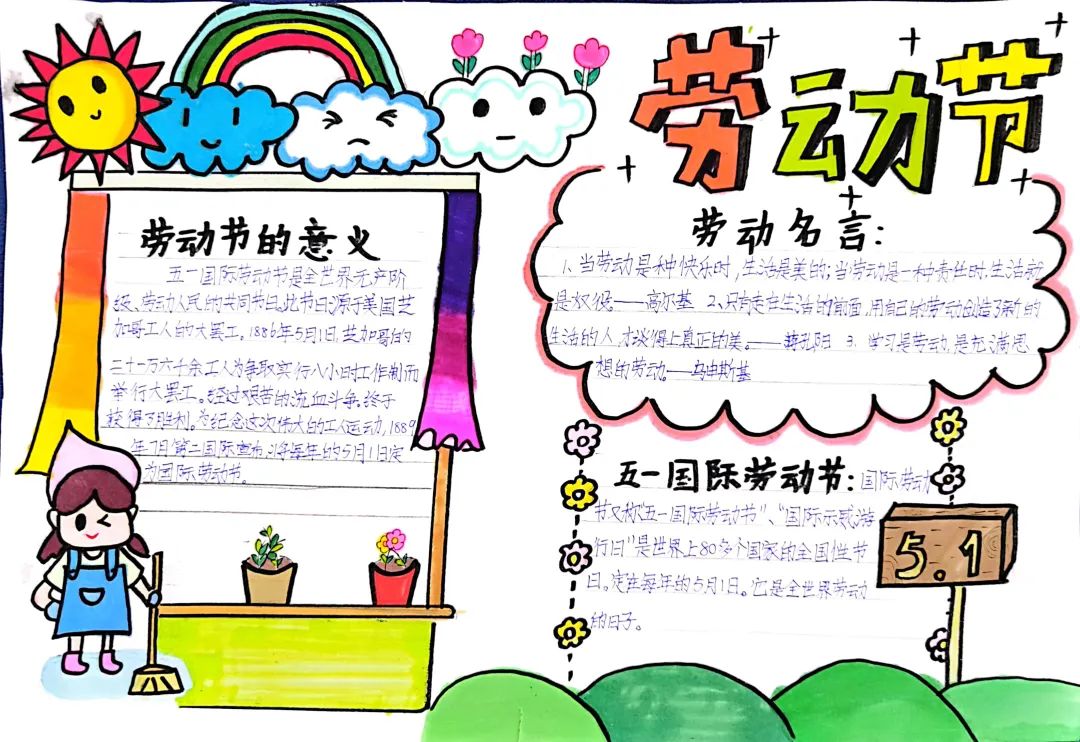 劳动节
劳动节的意义
五一国际劳动节是全世界无产阶
级、劳动人民的共同节日。此节日源于美国芝
加哥工人的大罢工。1886年5月1日,芝加哥的
二十一万六千余工人为争取实行八小时工作制而
举行大罢工。经过艰苦的流血斗争,终于
获得了胜利。为纪念这次伟大的工人运动,1889
年7月第二国际宣布,将每年的5月1日定
为国际劳动节。
劳动名言:
1、当劳动是种快乐时,生活是美的;当劳动是一种责任时,生活就
是奴役。——高尔基 2、只有走在生活的前面,用自己的劳动创造了新的
生活的人,才谈得上真正的美。——蒋孔阳 3、学习是劳动,是充满思
想的劳动。——乌申斯基
五一国际劳动节:国际劳动
节又称“五一国际劳动节”、“国际示威游
行日”是世界上80多个国家的全国性节
日。定在每年的5月1日。它是全世界劳动
的日子。
5.1